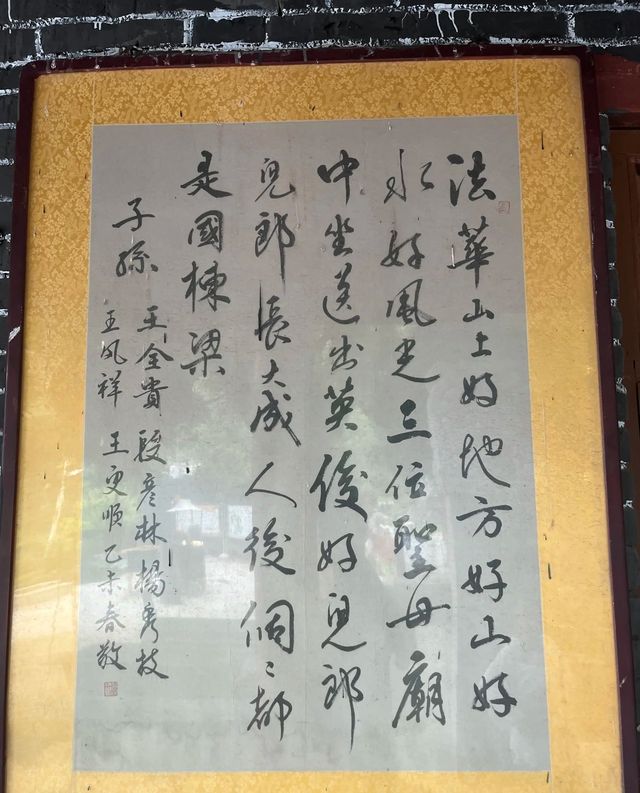 法華山上好地方好山好
水好風光三位聖母廟
中坐送出英俊好兒郎
兒郎長大成人後個々都
是國棟梁
子孫
王全貴 段彦林 楊秀枝
王风祥 王更順 乙未春敬